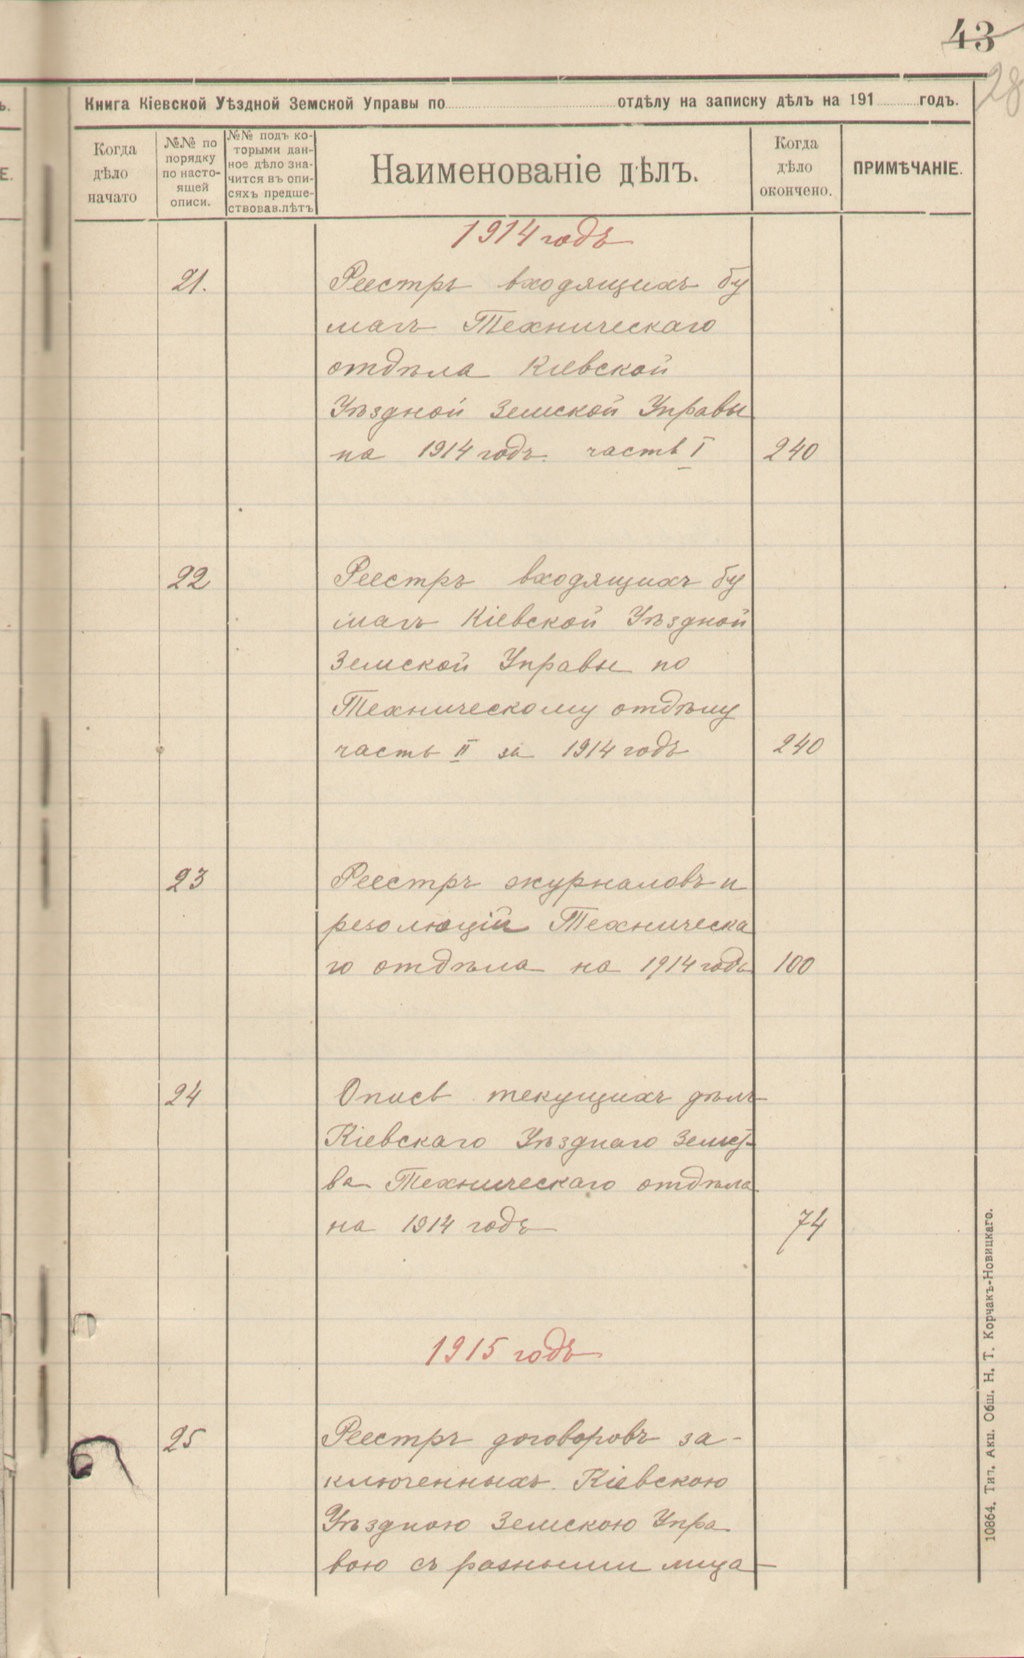 43
28
Книга Кіевской Уѣздной Земской Управы по отдѣлу на записку дѣлъ на 191 годъ.
Когда дѣло начато
№№ по порядку по настоящей описи.
№№ подъ которыми данное дѣло значится въ описяхъ предшествовав.лѣтъ
Наименованіе дѣлъ.
Когда дѣло окончено.
ПРИМѢЧАНІЕ.
1914 годъ
21. Реестръ входящихъ бу
магъ Техническаго
отдѣла Кіевской
Уѣздной Земской Управы
на 1914 годъ. часть I 240
22 Реестръ входящихъ бу
магъ Кіевской Уѣздной
Земской Управы по
Техническому отдѣлу
часть II за 1914 годъ 240
23 Реестръ журналовъ и
резолюцій Техническа
го отдѣла на 1914 годъ 100
24 Опись текущихъ дѣлъ
Кіевскаго Уѣзднаго Земст-
ва Техническаго отдѣла
на 1914 годъ 74
1915 годъ
25 Реестръ договоровъ за-
ключенныхъ Кіевскою
Уѣздною Земскою Упра
вою съ разными лица-
10864. Тип. Акц. Общ. Н. Т. Корчакъ-Новицкаго.